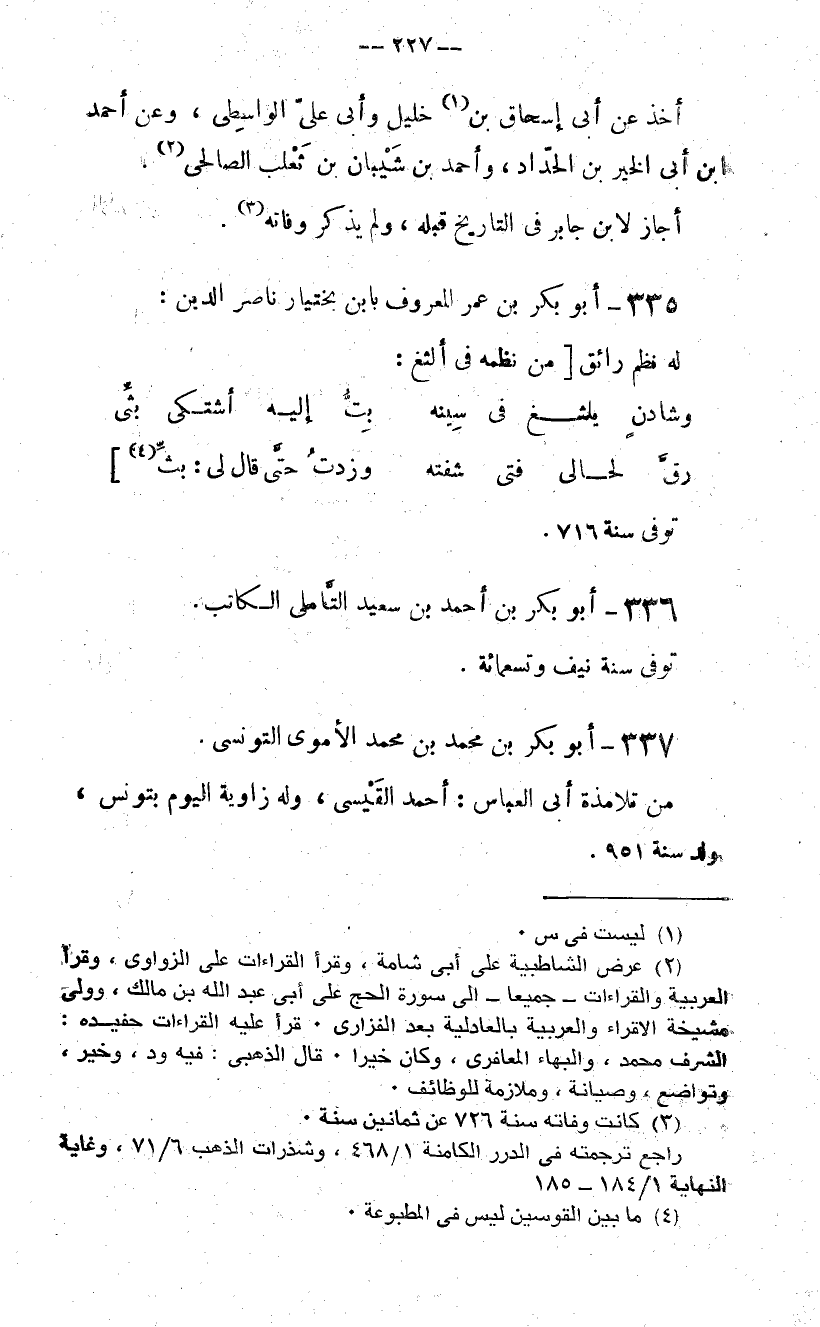 — ٢٢٧ —
أخذ عن أبى إسحاق بن(١) خليل وأبى علىّ الواسِطِى ، وعن أحمد
ابن أبى الخير بن الحدّاد ، وأحمد بن شَيْبان بن ثَعْلب الصالحى(٢) .
أجاز لابن جابر فى التاريخ قبله ، ولم يذكر وفاته(٣) .
٣٣٥ – أبو بكر بن عمر المعروف بابن بختيار ناصر الدين :
له نظم رائق [ من نظمه فى ألثغ :
وشادنٍ يلثــغ فى سِينه بِتُّ إليـه أشتـكى بثِّى
رقَّ لحـالى فتى شفته وزدتُ حتَّى قال لى : بثّ(٤) ]
توفى سنة ٧١٦ .
٣٣٦ – أبو بكر بن أحمد بن سعيد التَّاملى الـكاتب .
توفى سنة نيف وتسعمائة .
٣٣٧ – أبو بكر بن محمد بن محمد الأموى التونسى .
من تلامذة أبى العباس : أحمد القَيْسى ، وله زاوية اليوم بتونس ،
ولد سنة ٩٥١ .
(١) ليست فى س ٠
(٢) عرض الشاطبية على أبى شامة ، وقرأ القراءات على الزواوى ، وقرأ
العربية والقراءات – جميعا – الى سورة الحج على أبى عبد الله بن مالك ، وولى
مشيخة الاقراء والعربية بالعادلية بعد الفزارى ٠ قرأ عليه القراءات حفيـده :
الشرف محمد ، والبهاء المعافرى ، وكان خيرا ٠ قال الذهبى : فيه ود ، وخير ،
وتواضع ، وصيانة ، وملازمة للوظائف ٠
(٣) كانت وفاته سنة ٧٢٦ عن ثمانين سنة ٠
راجع ترجمته فى الدرر الكامنة ٤٦٨/١ ، وشذرات الذهب ٧١/٦ ، وغاية
النهاية ١٨٤/١ – ١٨٥
(٤) ما بين القوسين ليس فى المطبوعة ٠